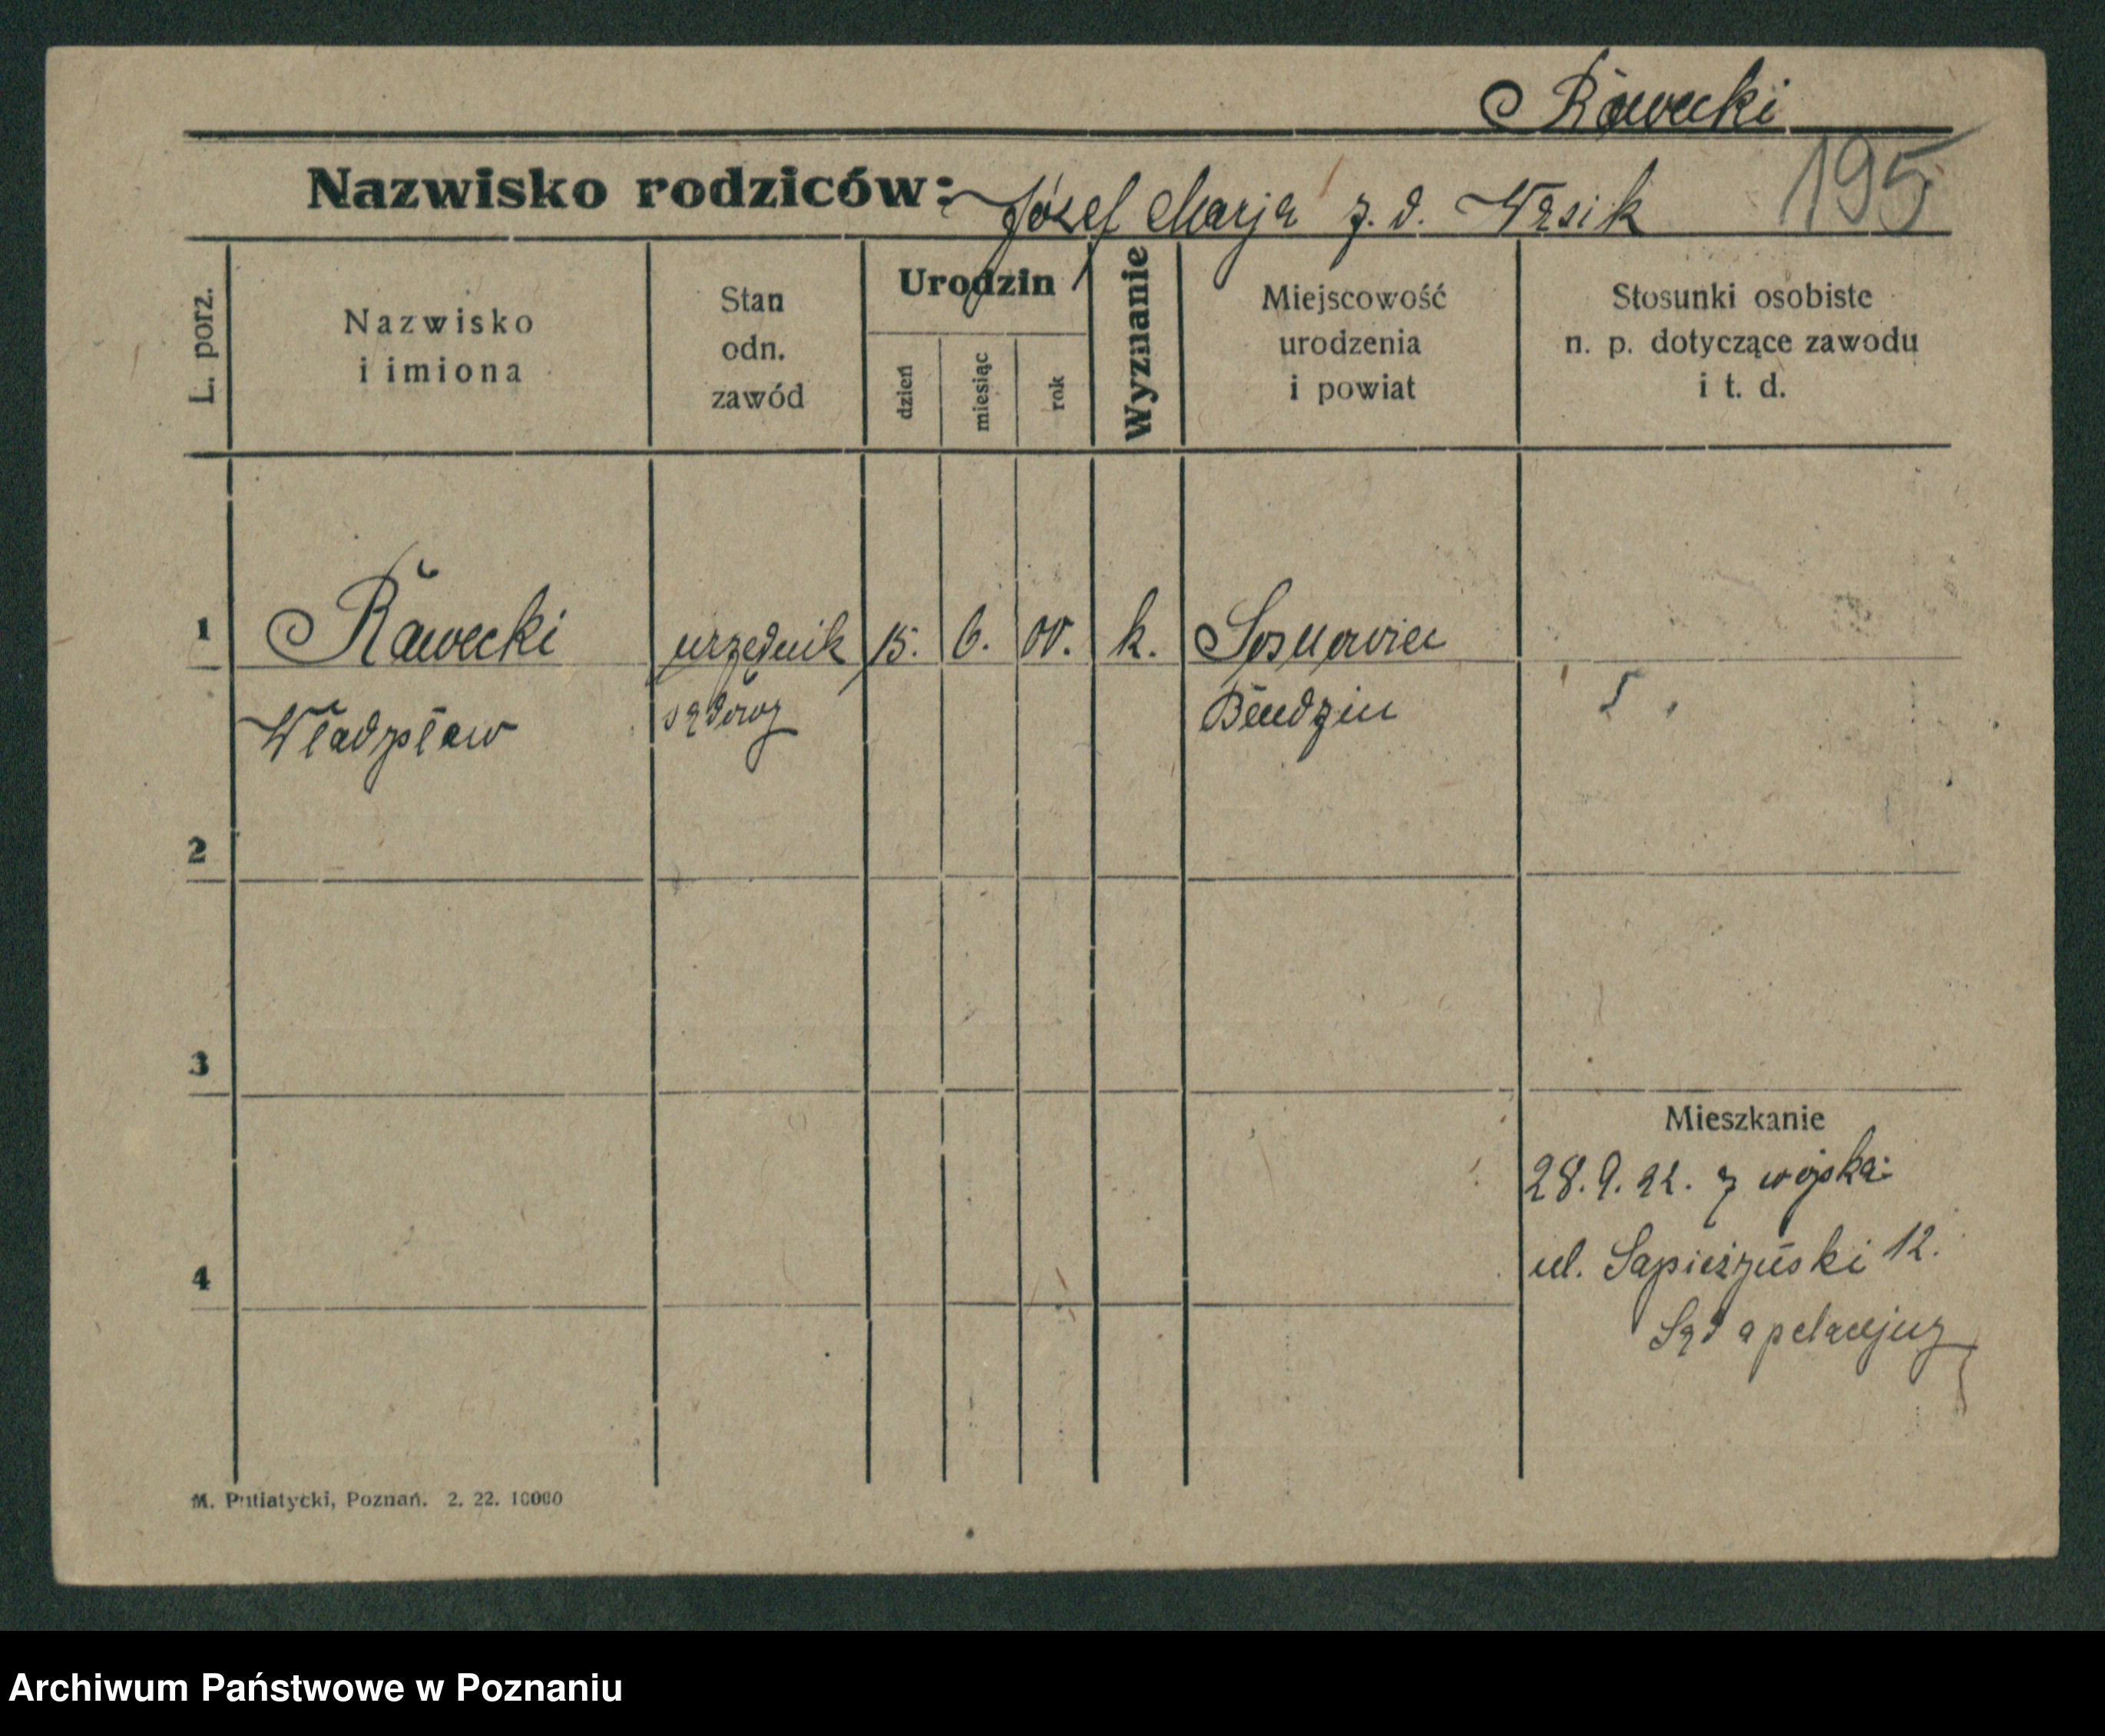 Rawecki
195
Nazwisko rodziców: Józef Marja z. d. Wąsik
L. porz.
Nazwisko
i imiona
Stan
odn.
zawód
Urodzin
dzień
miesiąc
rok
Wyznanie
Miejscowość
urodzenia
i powiat
Stosunki osobiste
n. p. dotyczące zawodu
i t. d.
1 Rawecki urzędnik 15. 6. 00. k. Sosnowiec
Władysław sądowy Bendzin
2
3
Mieszkanie
28. 9. 22. z wojska:
ul. Sapieżyński 12.
4
Sąd apelacyjny
M. Putiatycki, Poznań. 2. 22. 10000
Archiwum Państwowe w Poznaniu